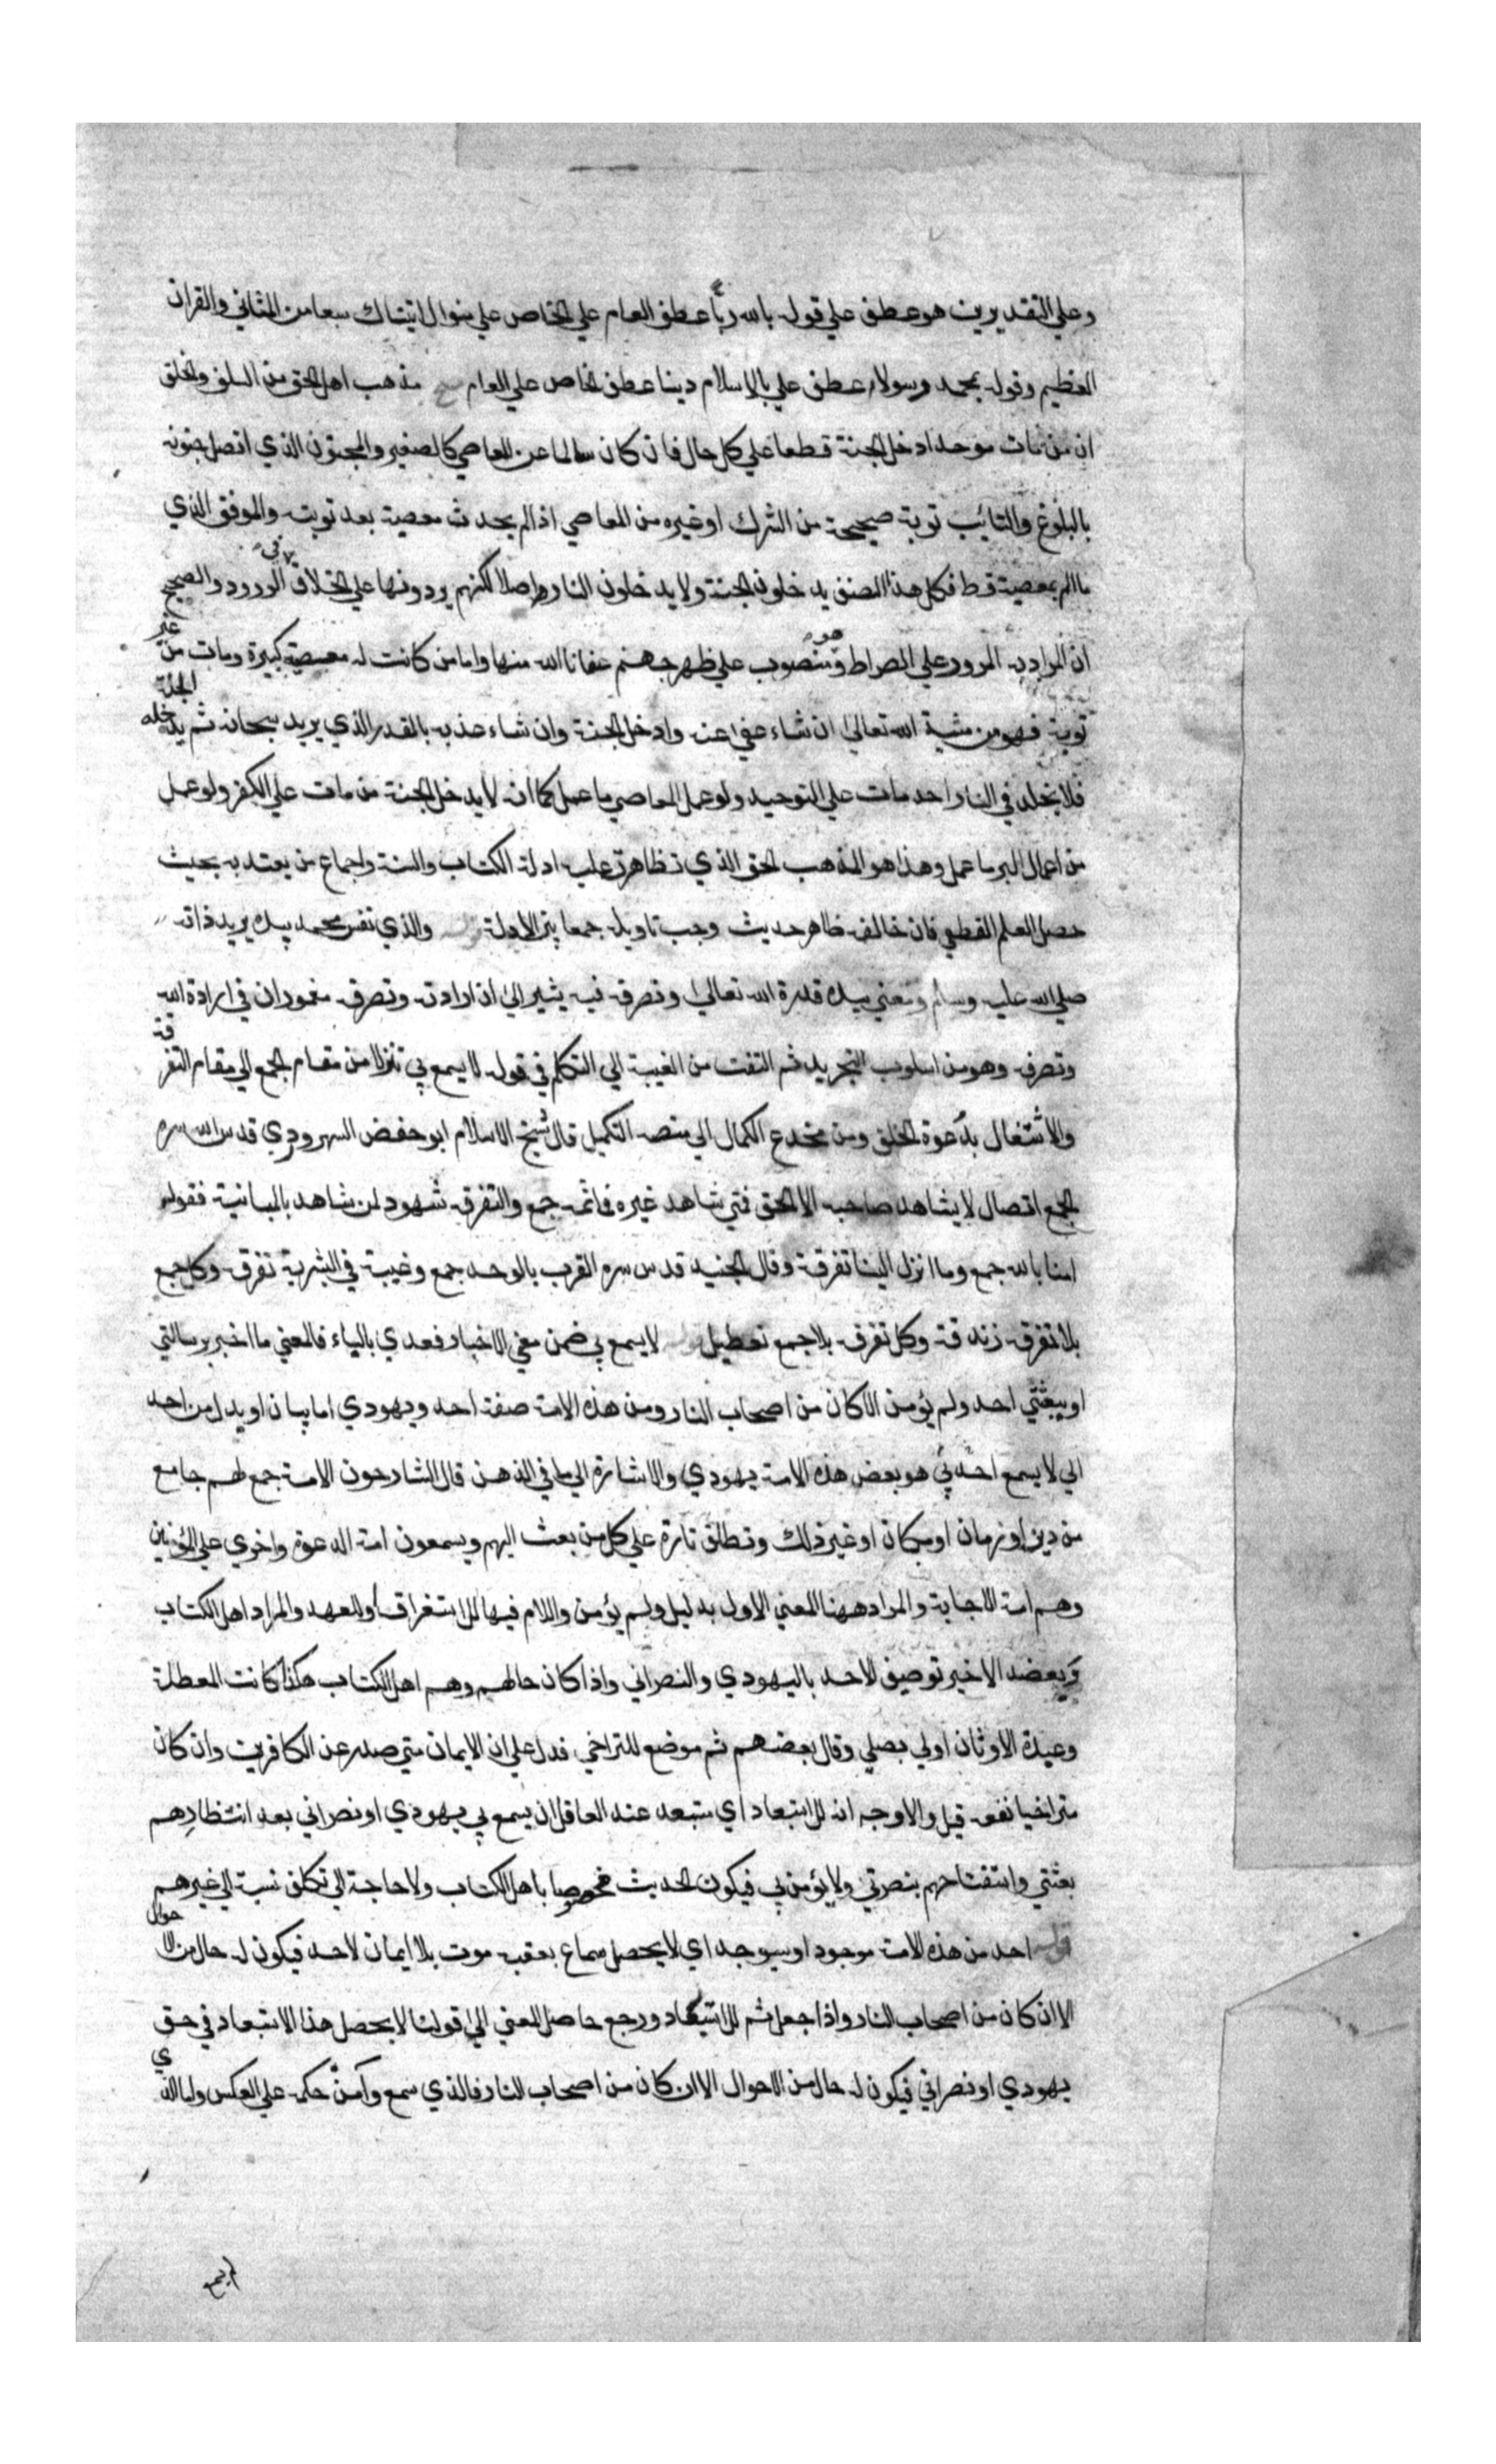 وعلي التقديرين هو عطف علي قوله بالله ربا عطف العام علي الخاص علي منوال اتيناك سبعا من المثاني والقران
العظيم وقوله بمحمد رسولا عطف علي بالاسلام دينا عطف الخاص علي العام مح مذهب اهل الحق من السلف والخلف
ان من مات موحدا دخل الجنة قطعا علي كل حال فان كان سالما عن المعاصي كالصغير والمجنون الذي اتصل جنونه
بالبلوغ والتائب توبة صحيحة من الشرك او غيره من المعاصي اذا لم يحدث معصية بعد توبته والموفق الذي
ما الم بمعصية قط فكل هذا الصنف يدخلون الجنة ولا يدخلون النار اصلا لكنهم يردونها علي الخلاف في الورود والصحيح
ان المراد به المرور علي الصراط وهو منصوب علي ظهر جهنم عفانا الله منها واما من كانت له معصية كبيرة ومات من غير
توبة فهو من مشية الله تعالي ان شاء عفي عنه وادخل الجنة وان شاء عذبه بالقدر الذي يريد سبحانه ثم يدخله الجنة
فلا يخلد في النار احد مات علي التوحيد ولو عمل المعاصي ما عمل كما انه لا يدخل الجنة من مات علي الكفر ولو عمل
من اعمال البر ما عمل وهذا هو المذهب الحق الذي تظاهرت عليه ادلة الكتاب والسنة واجماع من يعتد به بحيث
حصل العلم القطعي فان خالفه ظاهر حديث وجب تاويله جمعا بين الادلة والذي نفس محمد بيده يريد ذاته
صلي الله عليه وسلم ومعني بيده قدرة الله تعالي وتصرفه فيه يشير الي ان ارادته وتصرفه مغموران في ارادة الله
وتصرفه وهو من اسلوب التجريد ثم التفت من الغيبة الي التكلم في قوله لا يسمع بي تنزلا من مقام الجمع الي مقام التفرقة
والاشتغال بدعوة الخلق ومن مخدع الكمال الي منصة التكميل قال شيخ الاسلام ابو حفص السهرودي قدس الله سره
الجمع اتصال لا يشاهد صاحبه الا الحق فمتي شاهد غيره فما ثمه جمع والتفرقة شهود لمن شاهد بالمباينة فقوله
امنا بالله جمع وما انزل الينا تفرقة وقال الجنيد قدس سره القرب بالوجد جمع وغيبة في البشرية تفرقة وكل جمع
بلا تفرقة زندقة وكل تفرقة بلا جمع تعطيل لا يسمع بي ضمن معني الاخبار فعدي بالباء فالمعني ما اخبر برسالتي
او ببعثتي احد ولم يؤمن الا كان من اصحاب النار ومن هذه الامة صفة احد ويهودي اما بيان او بدل من احد
الي لا يسمع احد بي هو بعض هذه الامة يهودي والاشارة الي ما في الذهن قال الشارحون الامة جمع لهم جامع
من دين او زمان او مكان او غير ذلك وتطلق تارة علي كل من بعث اليهم ويسمعون امة الدعوة واخري علي المؤمنين
وهم امة الاجابة والمراد ههنا المعني الاول بدليل ولم يؤمن واللام فيها للاستغراق او للعهد والمراد اهل الكتاب
ويعضد الاخير توصيف لاحد باليهودي والنصراني واذا كان حالهم وهم اهل الكتاب هكذا كانت المعطلة
وعبدة الاوثان اولي بصلي وقال بعضهم ثم موضع للتراخي فدل علي ان الايمان متي صدر عن الكافرين وان كان
متراخيا نفعه قيل والاوجه انه للاستبعاد اي مستبعد عند العاقل ان يسمع بي يهودي او نصراني بعد انتظارهم
بعثتي واستفتاحهم بنصرتي ولا يؤمن بي فيكون الحديث مخصوصا باهل الكتاب ولا حاجة الي تكلف نسبة الي غيرهم
قوله احد من هذه الامة موجود او سيوجد اي لا يحصل سماع بعقبه موت بلا ايمان لاحد فيكون له حال من الاحوال
الا ان كان من اصحاب النار واذا جعل ثم للاستبعاد ورجع حاصل المعني الي قولنا لا يحصل هذا الاستبعاد في حق
يهودي او نصراني فيكون له حال من الاحوال الا ان كان من اصحاب النار فالذي سمع وآمن حكمه علي العكس واما الذي
لم يسمع